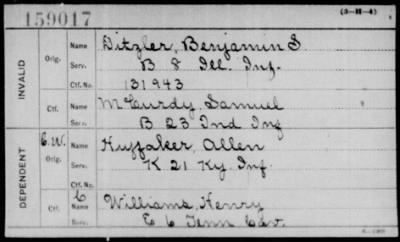 159017
(3-H-4)
INVALID
Orig.
Name Ditzler, Benjamin S.
Serv. B 8 Ill. Inf.
Ctf. No. 131943
Ctf.
Name McCurdy, Samuel
Serv. B 23 Ind Inf
DEPENDENT
C.W.
Orig.
Name Huffaker, Allen
Serv. K 21 Ky. Inf.
Ctf. No.
C
Ctf.
Name Williams, Henry
Serv. E 6 Tenn Cav.